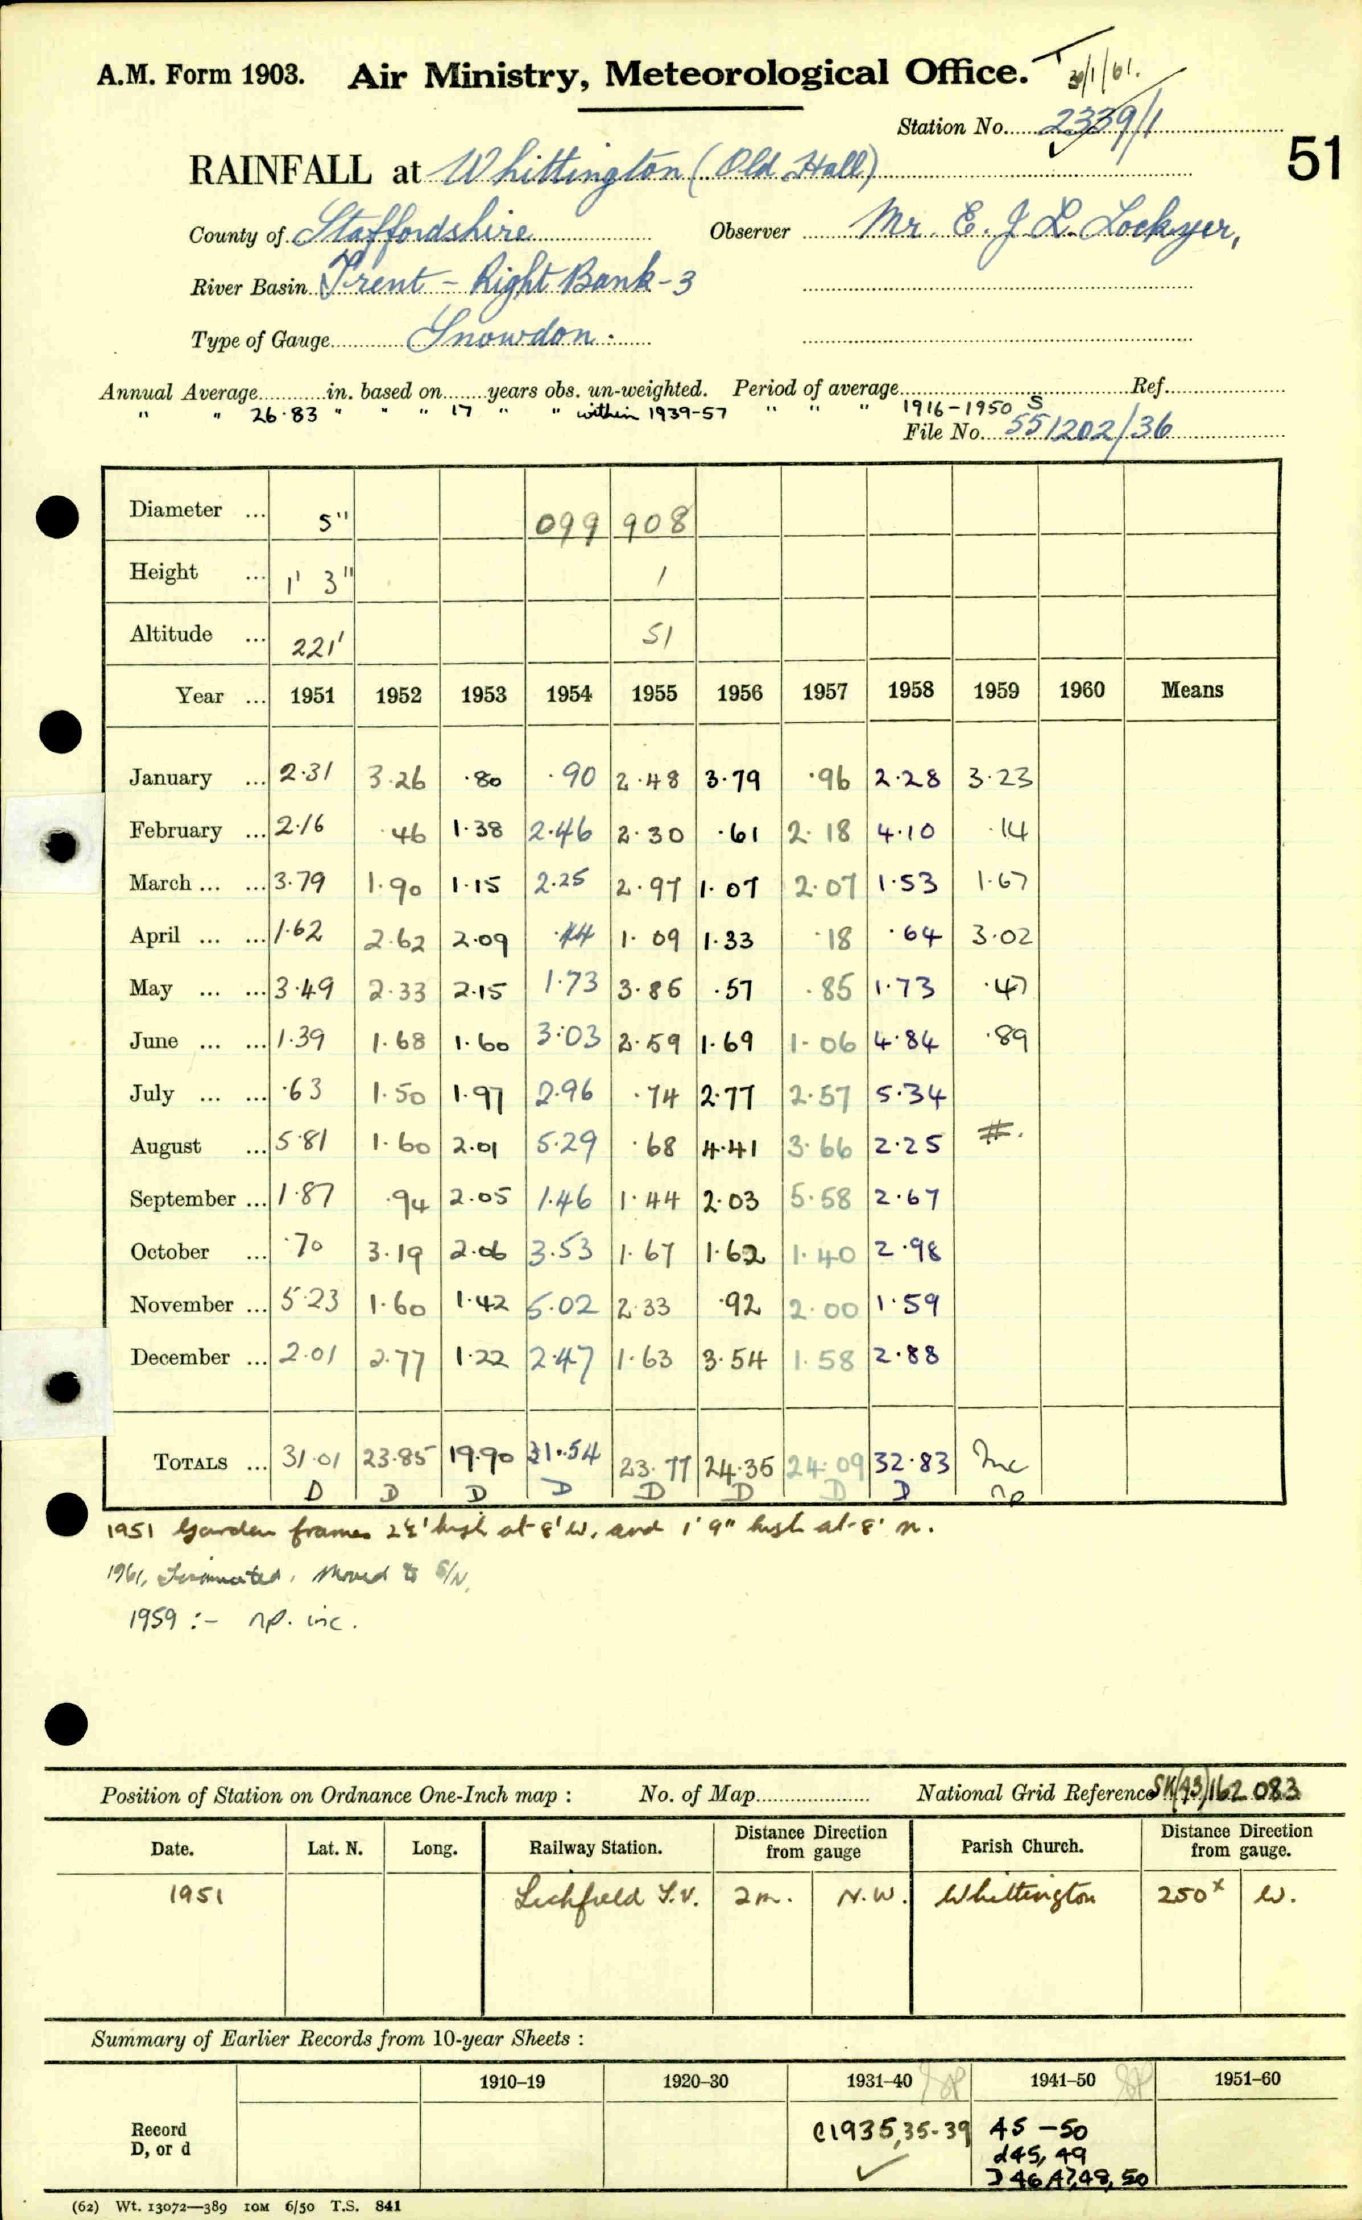 A.M. Form 1903. Air Ministry, Meteorological Office. 30/1/61.
Station No. 2339/1
51
RAINFALL at Whittington (Old Hall)
County of Staffordshire Observer Mr. E. J. L. Lockyer,
River Basin Trent - Right Bank - 3
Type of Gauge Snowdon.
Annual Average in. based on years obs. un-weighted. Period of average Ref.
" " 26.83 " " " 17 " " within 1939-57 " " " 1916-1950 S
File No. 551202/36
Diameter ... 5" 099 908
Height ... 1' 3" 1
Altitude ... 221' 51
Year ... 1951 1952 1953 1954 1955 1956 1957 1958 1959 1960 Means
January ... 2.31 3.26 .80 .90 2.48 3.79 .96 2.28 3.23
February ... 2.16 .46 1.38 2.46 2.30 .61 2.18 4.10 .14
March ... ... 3.79 1.90 1.15 2.25 2.97 1.07 2.07 1.53 1.67
April ... ... 1.62 2.62 2.09 .44 1.09 1.33 .18 .64 3.02
May ... ... 3.49 2.33 2.15 1.73 3.86 .57 .85 1.73 .47
June ... ... 1.39 1.68 1.60 3.03 2.59 1.69 1.06 4.84 .89
July ... ... .63 1.50 1.97 2.96 .74 2.77 2.57 5.34
August ... 5.81 1.60 2.01 5.29 .68 4.41 3.66 2.25 #.
September ... 1.87 .94 2.05 1.46 1.44 2.03 5.58 2.67
October ... .70 3.19 2.06 3.53 1.67 1.62 1.40 2.98
November ... 5.23 1.60 1.42 5.02 2.33 .92 2.00 1.59
December ... 2.01 2.77 1.22 2.47 1.63 3.54 1.58 2.88
TOTALS ... 31.01 23.85 19.90 31.54 23.77 24.35 24.09 32.83 Inc
D D D D D D D D np
1951 Garden frames 2½' high at 8' W, and 1' 9" high at 8' N.
1961, Terminated, moved to S/N.
1959 :- np. inc.
Position of Station on Ordnance One-Inch map : No. of Map National Grid Reference SK(43)162 083
Date. Lat. N. Long. Railway Station. Distance from Direction gauge Parish Church. Distance from Direction gauge.
1951 Lichfield T.V. 2m. N.W. Whittington 250x W.
Summary of Earlier Records from 10-year Sheets :
1910–19 1920–30 1931–40 1941–50 1951–60
Record C1935,35-39 45 - 50
D, or d d45, 49
D 46 47,48, 50
(62) Wt. 13072—389 10M 6/50 T.S. 841